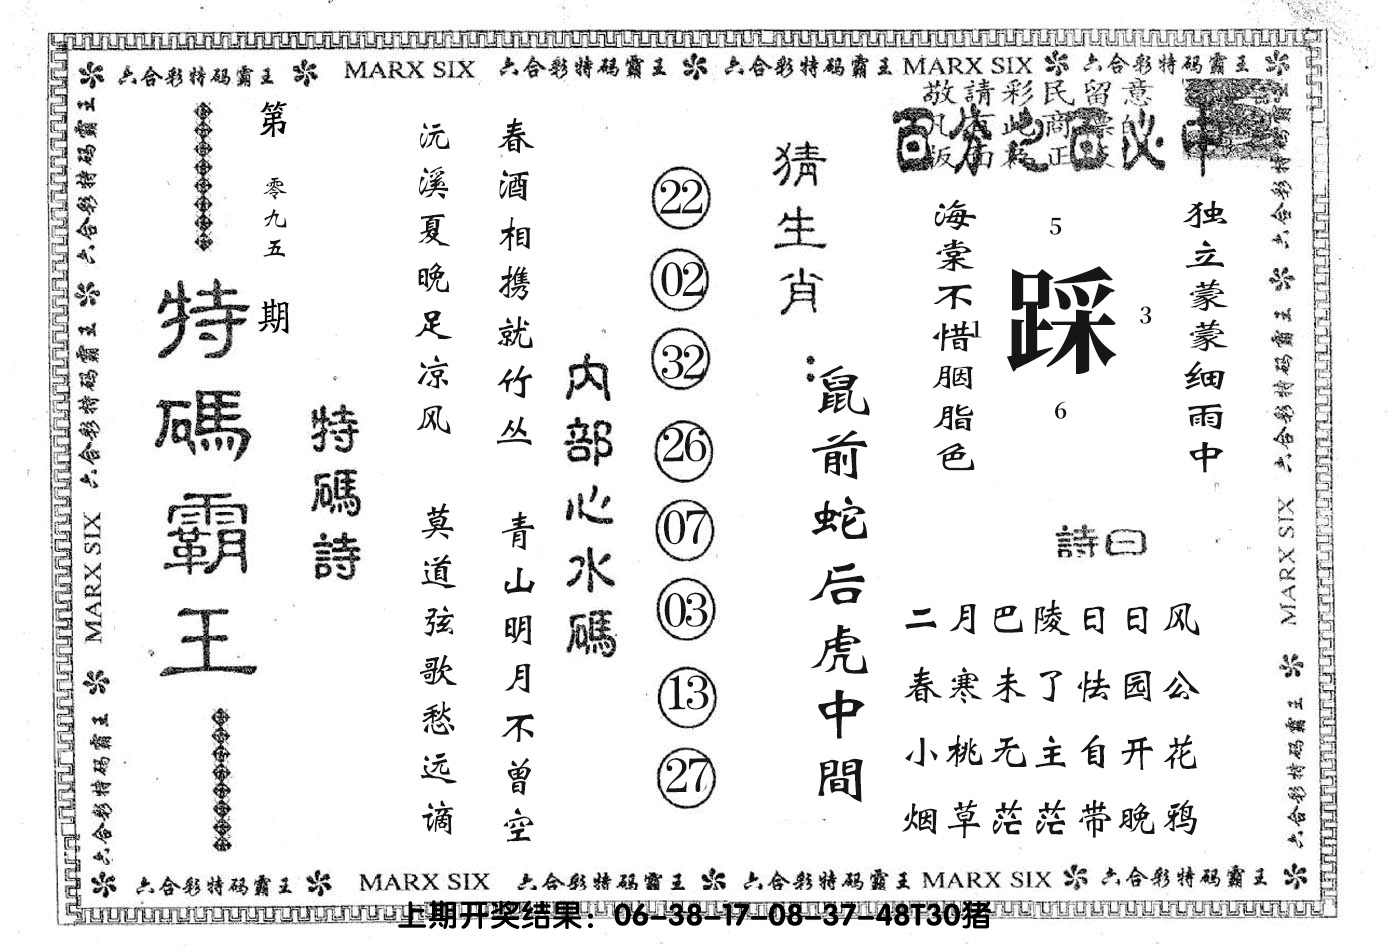 六合彩特码霸王 MARX SIX 六合彩特码霸王 六合彩特码霸王 MARX SIX 六合彩特码霸王
敬請彩民留意
百分之百必中
独立蒙蒙细雨中
海棠不惜胭脂色
5
踩
1
3
6
詩曰
二月巴陵日日风
春寒未了怯园公
小桃无主自开花
烟草茫茫带晚鸦
猜生肖:
鼠前蛇后虎中間
22
02
32
26
07
03
13
27
内部心水碼
春酒相携就竹丛 青山明月不曾空
沅溪夏晚足凉风 莫道弦歌愁远谪
特碼詩
第零九五期
特碼霸王
六合彩特码霸王 六合彩特码霸王 MARX SIX 六合彩特码霸王
六合彩特码霸王 六合彩特码霸王 MARX SIX 六合彩特码霸王
六合彩特码霸王 MARX SIX 六合彩特码霸王 六合彩特码霸王 MARX SIX 六合彩特码霸王
上期开奖结果：06-38-17-08-37-48T30猪